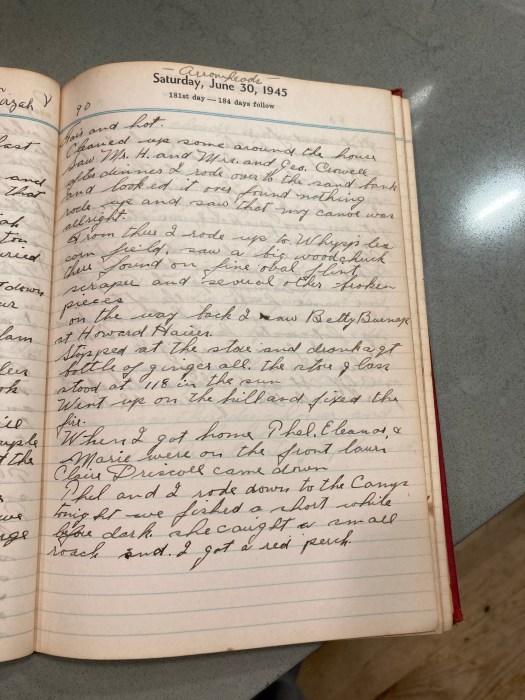 — Arrowheads —
Saturday, June 30, 1945
181st day — 184 days follow
90
Fair and hot.
Cleaned up some around the house
Saw Mr. H. and Mrs. and Geo. Crowell
after dinner I rode over to the sand bank
and looked it over found nothing
rode up and saw that my canoe was
allright.
From there I rode up to
corn field. saw a big woodchuck
there found on fine oval flint
scraper and several other broken
pieces
on the way back I saw Betty
at Howard
Stopped at the store and drank a qt
bottle of ginger all. the store glass
stood at 118 in the sun
Went up on the hill and fixed the
fire.
When I got home Phel, Eleanor, &
Marie were on the front lawn
Claire Driscoll came down
Phel and I rode down to the
tonight we fished a short while
before dark she caught a small
roach and I got a red perch.
last
and
that